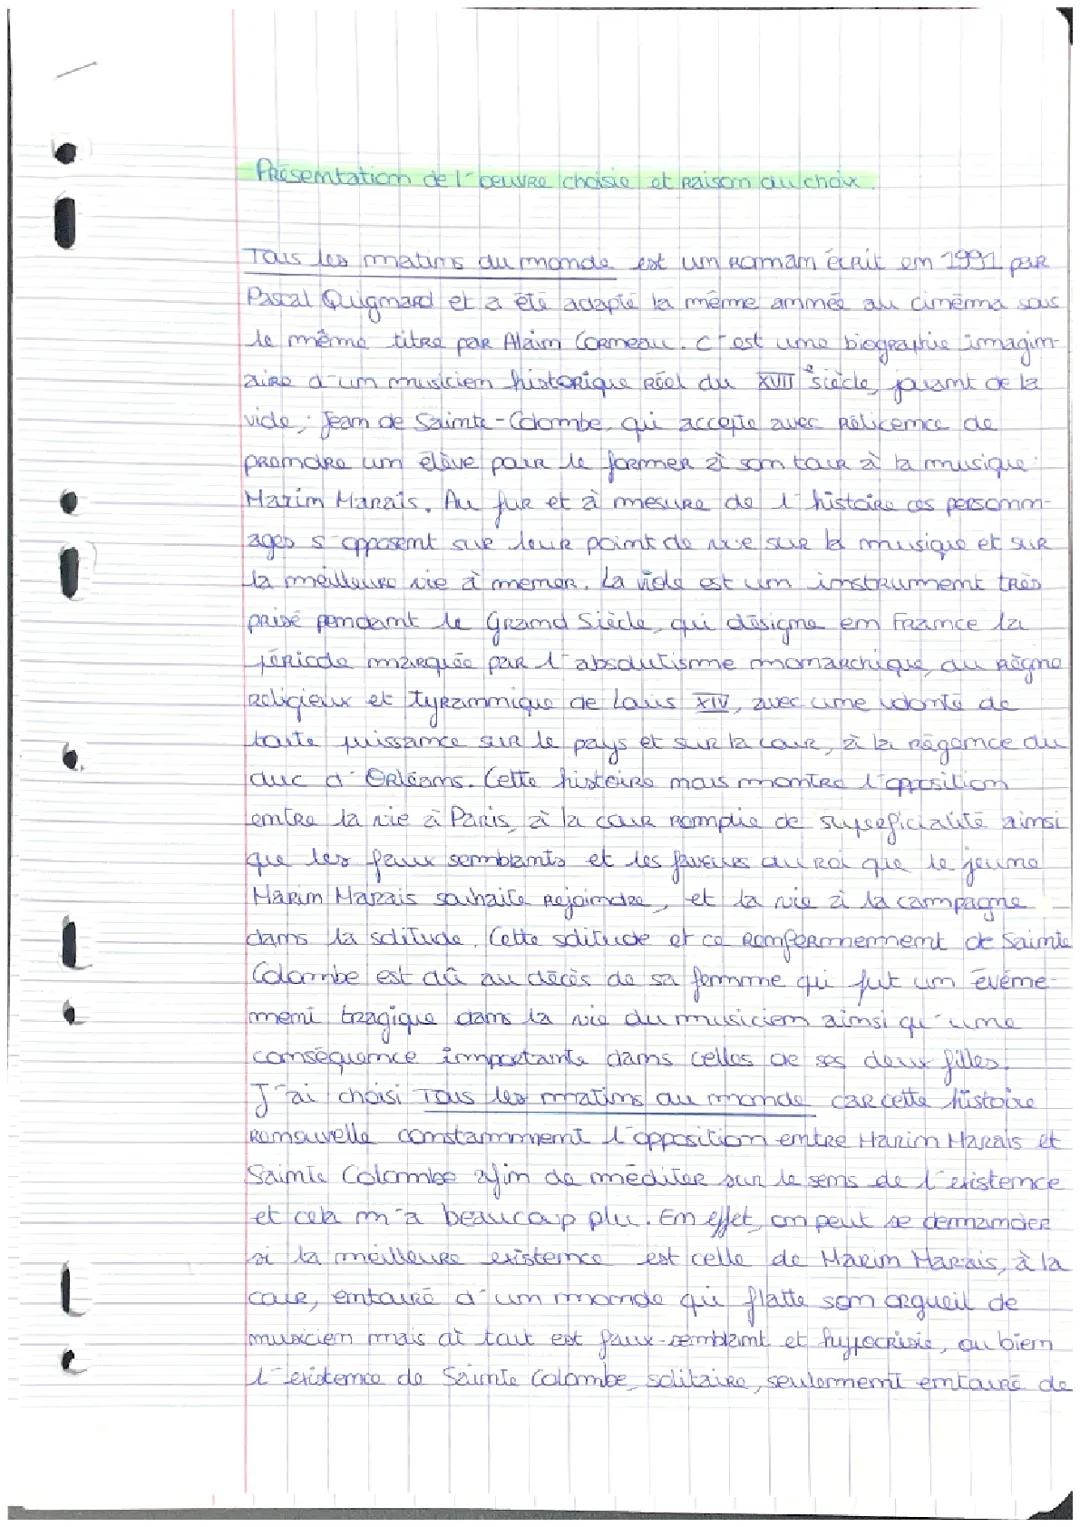 Présentation de l'oeuvre choisie et raison du choix.
Tous les matins du monde est un roman écrit en 1991 par
Pascal Quignard et a été adapté la même année au cinéma sous
le même titre par Alain Corneau. C'est une biographie imagin-
aire d'un musicien historique réel du XVII e siècle, jouant de la
viole ; Jean de Sainte-Colombe, qui accepte avec réticence de
prendre un élève pour le former à son tour à la musique :
Marin Marais. Au fur et à mesure de l'histoire ces personn-
ages s'opposent sur leur point de vue sur la musique et sur
la meilleure vie à mener. La viole est un instrument très
prisé pendant le Grand Siècle, qui désigne en France la
période marquée par l'absolutisme monarchique, du règne
religieux et tyrannique de Louis XIV, avec une volonté de
toute puissance sur le pays et sur la cour, à la régence du
duc d'Orléans. Cette histoire nous montre l'opposition
entre la vie à Paris, à la cour remplie de superficialité ainsi
que les faux semblants et les faveurs du roi que le jeune
Marin Marais souhaite rejoindre, et la vie à la campagne
dans la solitude. Cette solitude et ce renfermement de Sainte
Colombe est dû au décès de sa femme qui fut un événe-
ment tragique dans la vie du musicien ainsi qu'une
conséquence importante dans celles de ses deux filles.
J'ai choisi Tous les matins du monde car cette histoire
renouvelle constamment l'opposition entre Marin Marais et
Sainte Colombe afin de méditer sur le sens de l'existence
et cela m'a beaucoup plu. En effet, on peut se demander
si la meilleure existence est celle de Marin Marais, à la
cour, entouré d'un monde qui flatte son orgueil de
musicien mais où tout est faux-semblant et hypocrisie, ou bien
l'existence de Sainte Colombe, solitaire, seulement entouré de